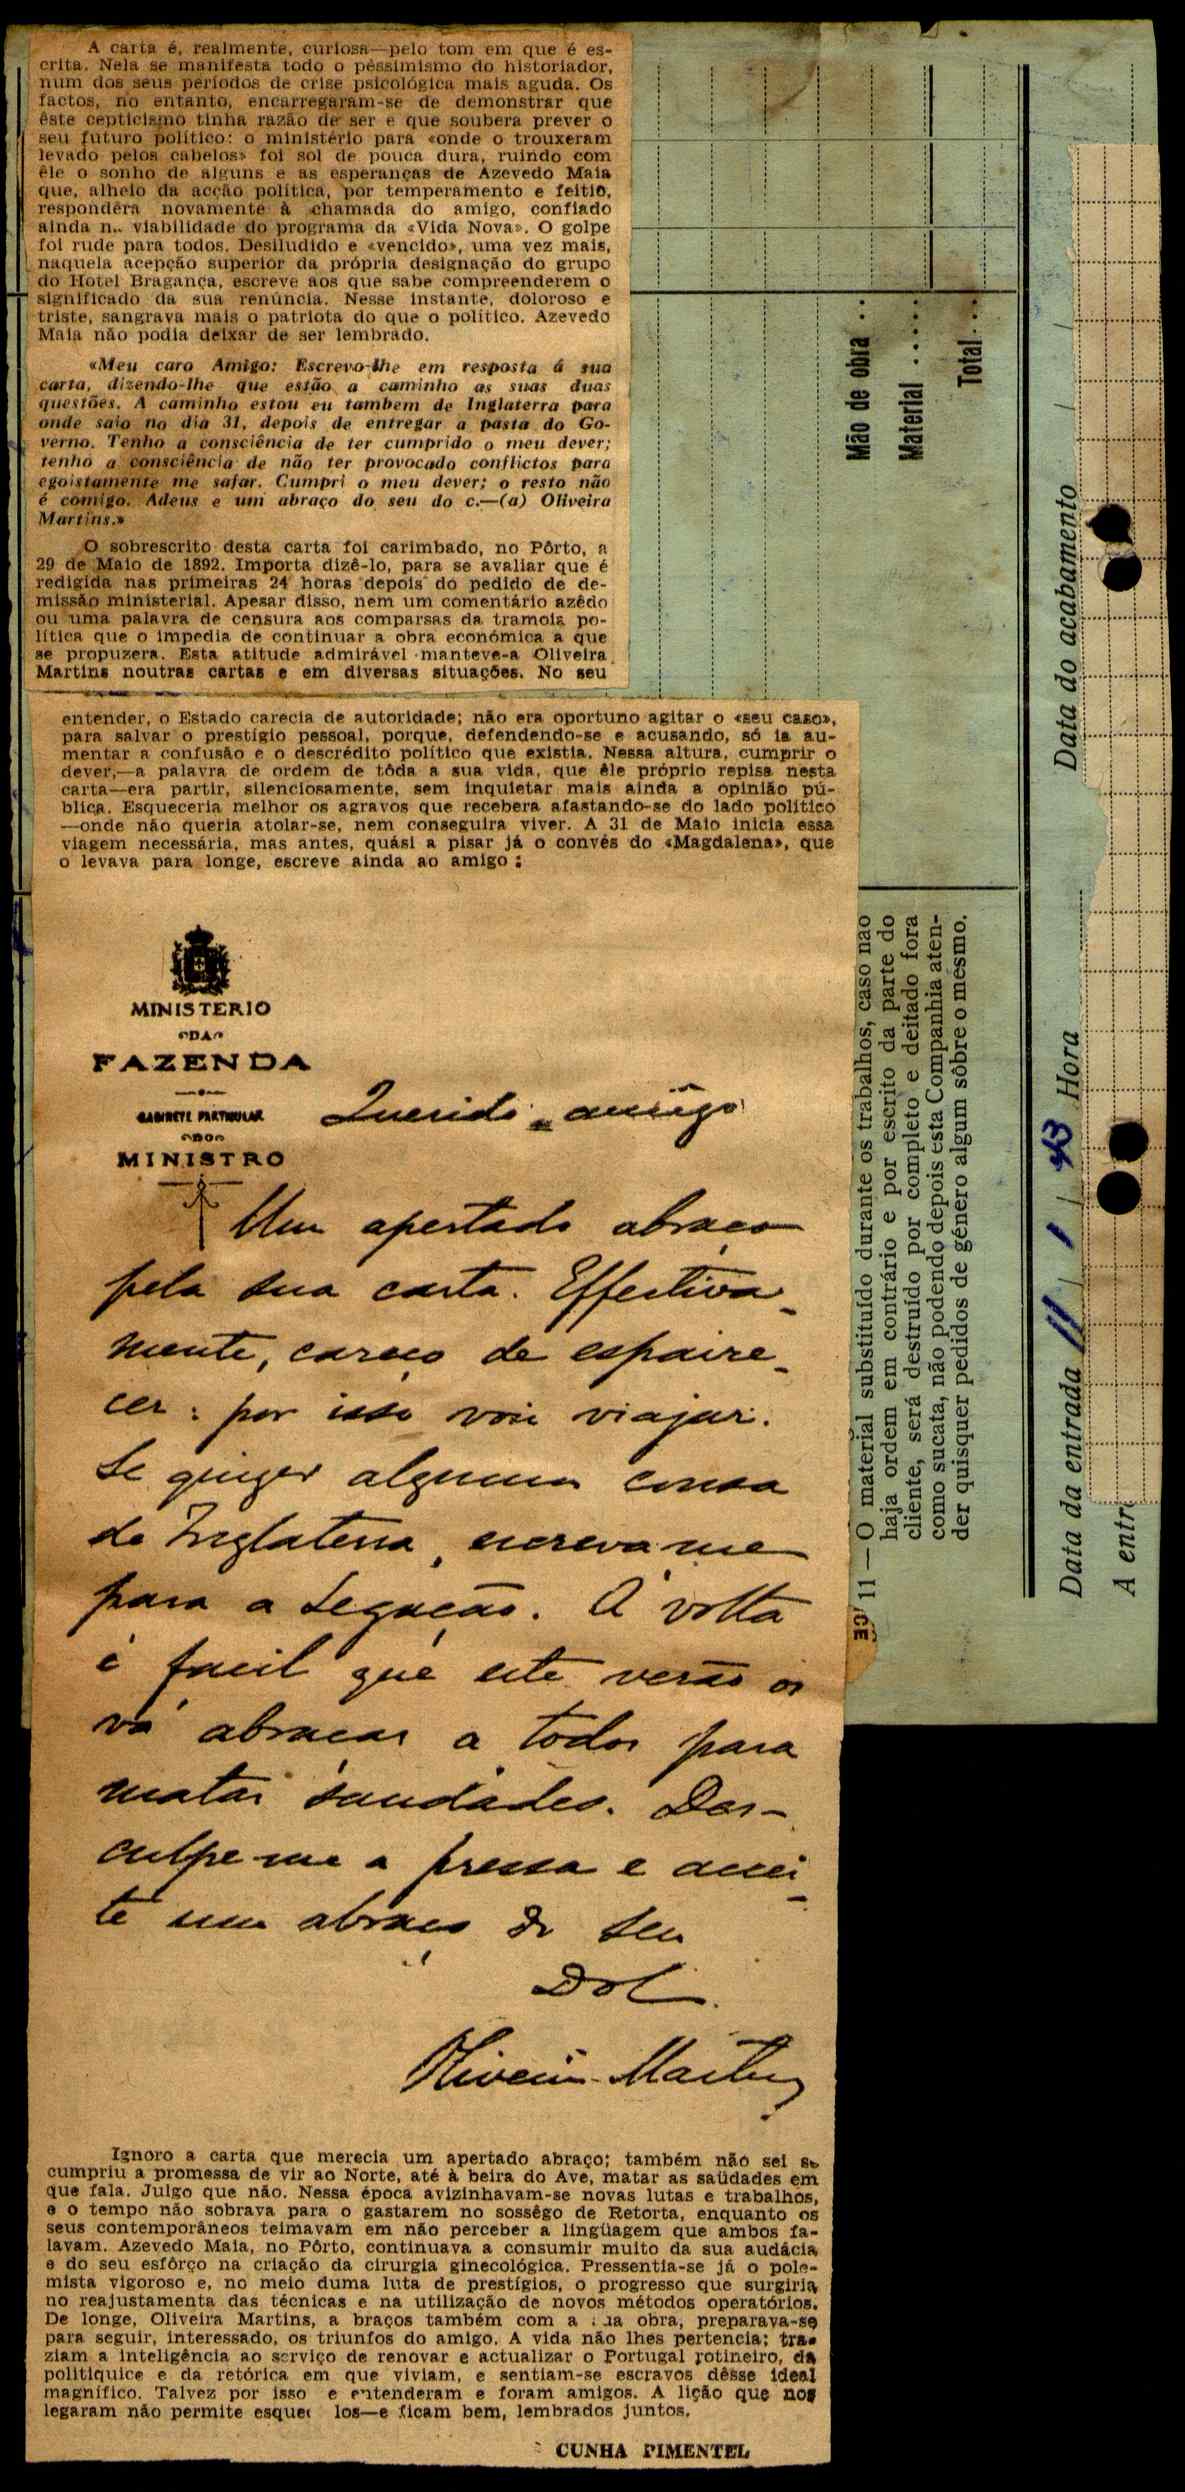 A carta é, realmente, curiosa—pelo tom em que é es-
crita. Nela se manifesta todo o pèssimismo do historiador,
num dos seus períodos de crise psicológica mais aguda. Os
factos, no entanto, encarregaram-se de demonstrar que
êste cepticismo tinha razão de ser e que soubera prever o
seu futuro político: o ministério para «onde o trouxeram
levado pelos cabelos» foi sol de pouca dura, ruindo com
êle o sonho de alguns e as esperanças de Azevedo Maia
que, alheio da acção política, por temperamento e feitio,
respondêra novamente à chamada do amigo, confiado
ainda n.. viabilidade do programa da «Vida Nova». O golpe
foi rude para todos. Desiludido e «vencido», uma vez mais,
naquela acepção superior da própria designação do grupo
do Hotel Bragança, escreve aos que sabe compreenderem o
significado da sua renúncia. Nesse instante, doloroso e
triste, sangrava mais o patriota do que o político. Azevedo
Maia não podia deixar de ser lembrado.
«Meu caro Amigo: Escrevo-lhe em resposta á sua
carta, dizendo-lhe que estão a caminho as suas duas
questões. A caminho estou eu tambem de Inglaterra para
onde saio no dia 31, depois de entregar a pasta do Go-
verno. Tenho a consciência de ter cumprido o meu dever;
tenho a consciência de não ter provocado conflictos para
egoistamente me safar. Cumpri o meu dever; o resto não
é comigo. Adeus e um abraço do seu do c.—(a) Oliveira
Martins.»
O sobrescrito desta carta foi carimbado, no Pôrto, a
29 de Maio de 1892. Importa dizê-lo, para se avaliar que é
redigida nas primeiras 24 horas depois do pedido de de-
missão ministerial. Apesar disso, nem um comentário azêdo
ou uma palavra de censura aos comparsas da tramoia po-
lítica que o impedia de continuar a obra económica a que
se propuzera. Esta atitude admirável manteve-a Oliveira
Martins noutras cartas e em diversas situações. No seu
entender, o Estado carecia de autoridade; não era oportuno agitar o «seu caso»,
para salvar o prestígio pessoal, porque, defendendo-se e acusando, só ia au-
mentar a confusão e o descrédito político que existia. Nessa altura, cumprir o
dever,—a palavra de ordem de tôda a sua vida, que êle próprio repisa nesta
carta—era partir, silenciosamente, sem inquietar mais ainda a opinião pú-
blica. Esqueceria melhor os agravos que recebera afastando-se do lado político
—onde não queria atolar-se, nem conseguira viver. A 31 de Maio inicia essa
viagem necessária, mas antes, quási a pisar já o convés do «Magdalena», que
o levava para longe, escreve ainda ao amigo:
MINISTERIO
DA
FAZENDA
GABINETE PARTICULAR
DO
MINISTRO
Querido amigo
Um apertado abraço
pela sua carta. Effectiva-
mente, careço de espaire-
cer: por isso vou viajar.
Se quizer alguma cousa
de Inglaterra, escreva-me
para a Legação. Á volta
é facil que este verão os
vá abraçar a todos para
matar saudades. Des-
culpe-me a pressa e accei-
te um abraço do seu
Do C.
Oliveira Martins
Ignoro a carta que merecia um apertado abraço; também não sei se
cumpriu a promessa de vir ao Norte, até à beira do Ave, matar as saüdades em
que fala. Julgo que não. Nessa época avizinhavam-se novas lutas e trabalhos,
e o tempo não sobrava para o gastarem no sossêgo de Retorta, enquanto os
seus contemporâneos teimavam em não perceber a lingüagem que ambos fa-
lavam. Azevedo Maia, no Pôrto, continuava a consumir muito da sua audácia
e do seu esfôrço na criação da cirurgia ginecológica. Pressentia-se já o pole-
mista vigoroso e, no meio duma luta de prestígios, o progresso que surgiria
no reajustamenta das técnicas e na utilização de novos métodos operatórios.
De longe, Oliveira Martins, a braços também com a sua obra, preparava-se
para seguir, interessado, os triunfos do amigo. A vida não lhes pertencia; tra-
ziam a inteligência ao serviço de renovar e actualizar o Portugal rotineiro, da
politiquice e da retórica em que viviam, e sentiam-se escravos dêsse ideal
magnífico. Talvez por isso e entenderam e foram amigos. A lição que nos
legaram não permite esque los—e ficam bem, lembrados juntos.
CUNHA PIMENTEL
Mão de obra ..
Material ......
Total ...
11 — O material substituído durante os trabalhos, caso não
haja ordem em contrário e por escrito da parte do
cliente, será destruído por completo e deitado fora
como sucata, não podendo depois esta Companhia aten-
der quisquer pedidos de género algum sôbre o mesmo.
Data da entrada 11 / 1 / 43 Hora
Data do acabamento / /
A entr